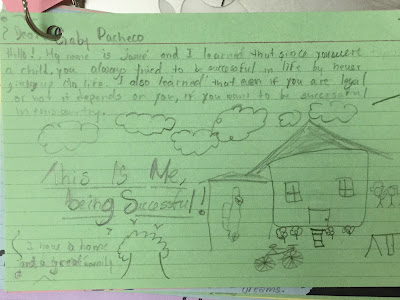 Dear Gaby Pacheco
Hello! My name is and I learned that since you were
a child, you always tried to be successful in life by never
giving up in life. I also learned that even if you are legal
or not it depends on you, if you want to be successful
in this country.
This Is Me,
being Successful!!
I have a home
and a great family
dreams.